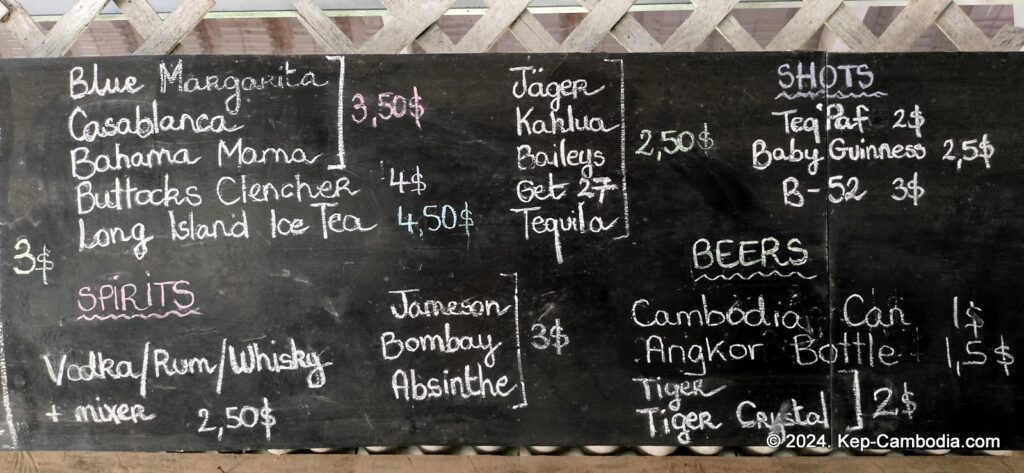 Blue Margarita
Casablanca
Bahama Mama
3,50$
Buttocks Clencher 4$
Long Island Ice Tea 4,50$
3$
SPIRITS
Vodka/Rum/Whisky
+ mixer 2,50$
Jäger
Kahlua
Baileys
Get 27
Tequila
2,50$
Jameson
Bombay
Absinthe
3$
SHOTS
Teq'Paf 2$
Baby Guinness 2,5$
B-52 3$
BEERS
Cambodia Can 1$
Angkor Bottle 1,5$
Tiger
Tiger Crystal
2$
© 2024. Kep-Cambodia.com